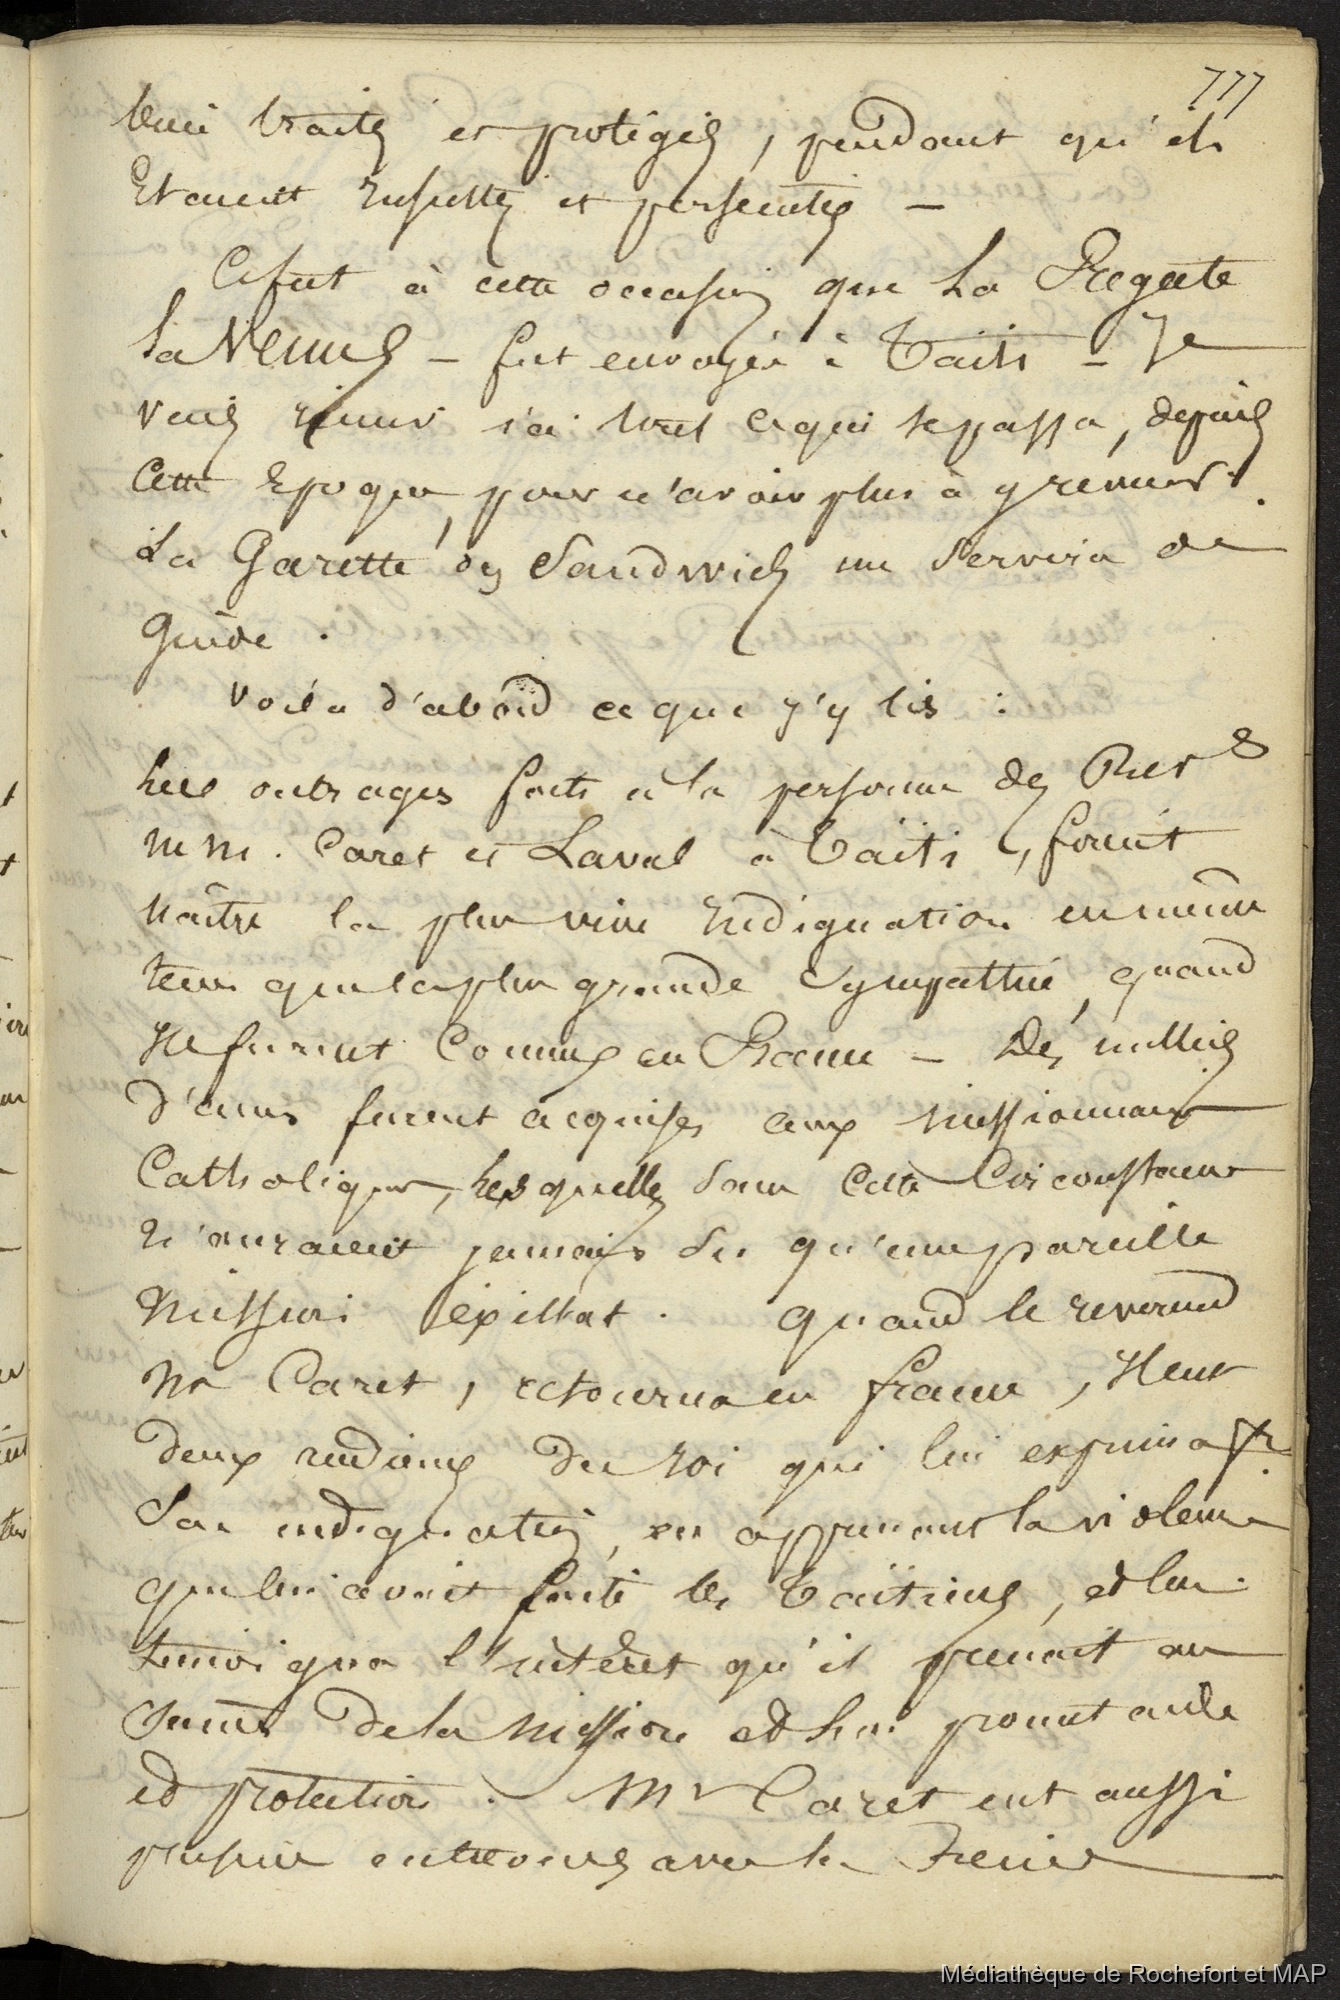 777
bien traités et protégés, pendant qu'ils
Etaient insultés et persecutés —
Ce fut à cette occasion que La Fregate
la Venus — fut envoyée à Taïti — Je
vais réunir ici tout ce qui se passa, depuis
Cette Epoque, pour n'avoir plus à y revenir.
La Gazette des Sandwich me Servira de
Guide.
Voila d'abord ce que j'y lis :
Les outrages faits à la personne des Rev ds
mm. Caret et Laval à Taïti, firent
naître la plus vive indignation en même
tems que la plus grande Sympathie, quand
Ils furent Connus en France — Des milliers
d'amis furent acquises aux missionnaires
Catholiques, lesquelles sans cette Circonstance
n'auraient jamais su qu'une pareille
Mission existat. Quand le reverend
Mr Caret, retourna en france, Il eut
deux audiences du roi qui lui exprima
Son indignation, en apprenant la violence
que lui avait faite les Taïtiens, et lui
temoigna l'intèret qu'il prenait au
Succès de la Mission et lui promit aide
et protection. Mr Caret eut aussi
plusieurs entrevues avec la Reine
Médiathèque de Rochefort et MAP